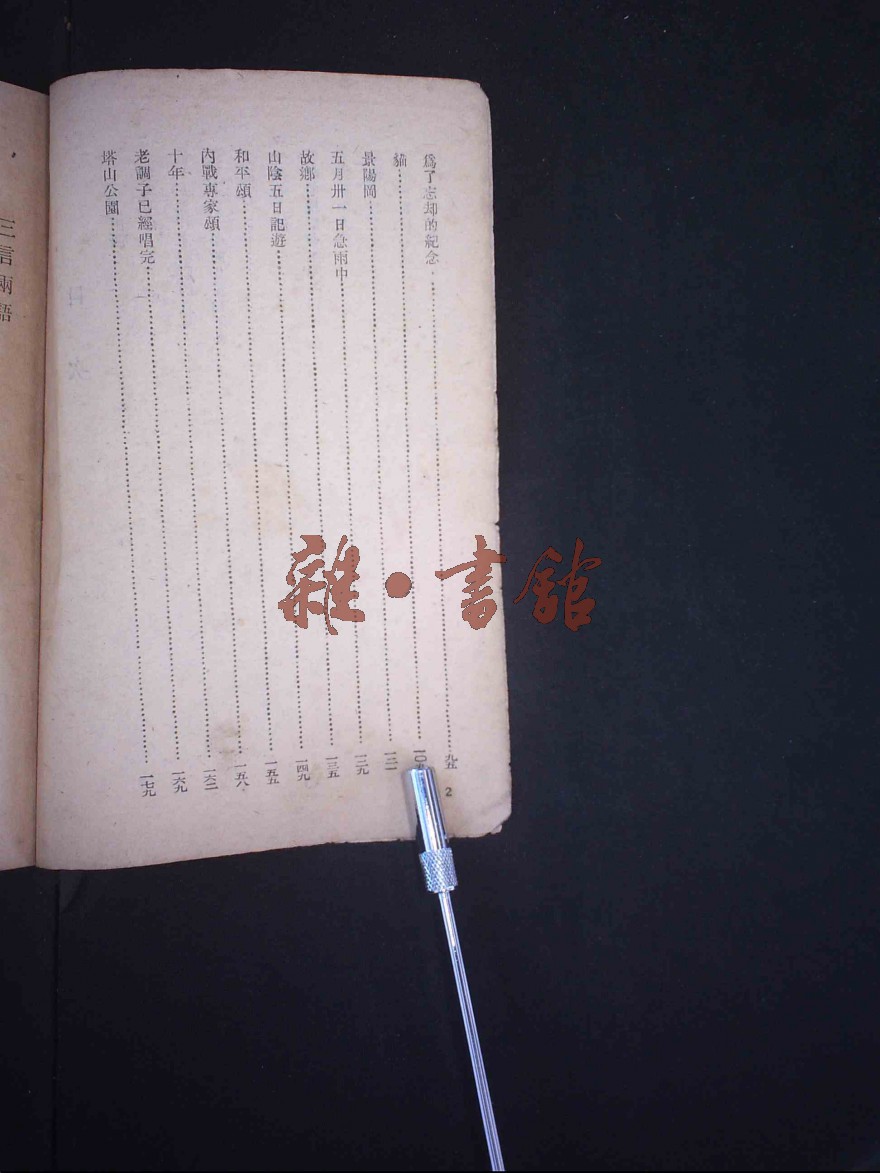 爲了忘却的紀念 九五
貓 一〇九
景陽岡 一二一
五月卅一日急雨中 一二九
故鄉 一三五
山陰五日記遊 一四九
和平頌 一五五
內戰專家頌 一五八
十年 一六二
老調子已經唱完 一六九
塔山公園 一七九
2
三言兩語
雜•書館